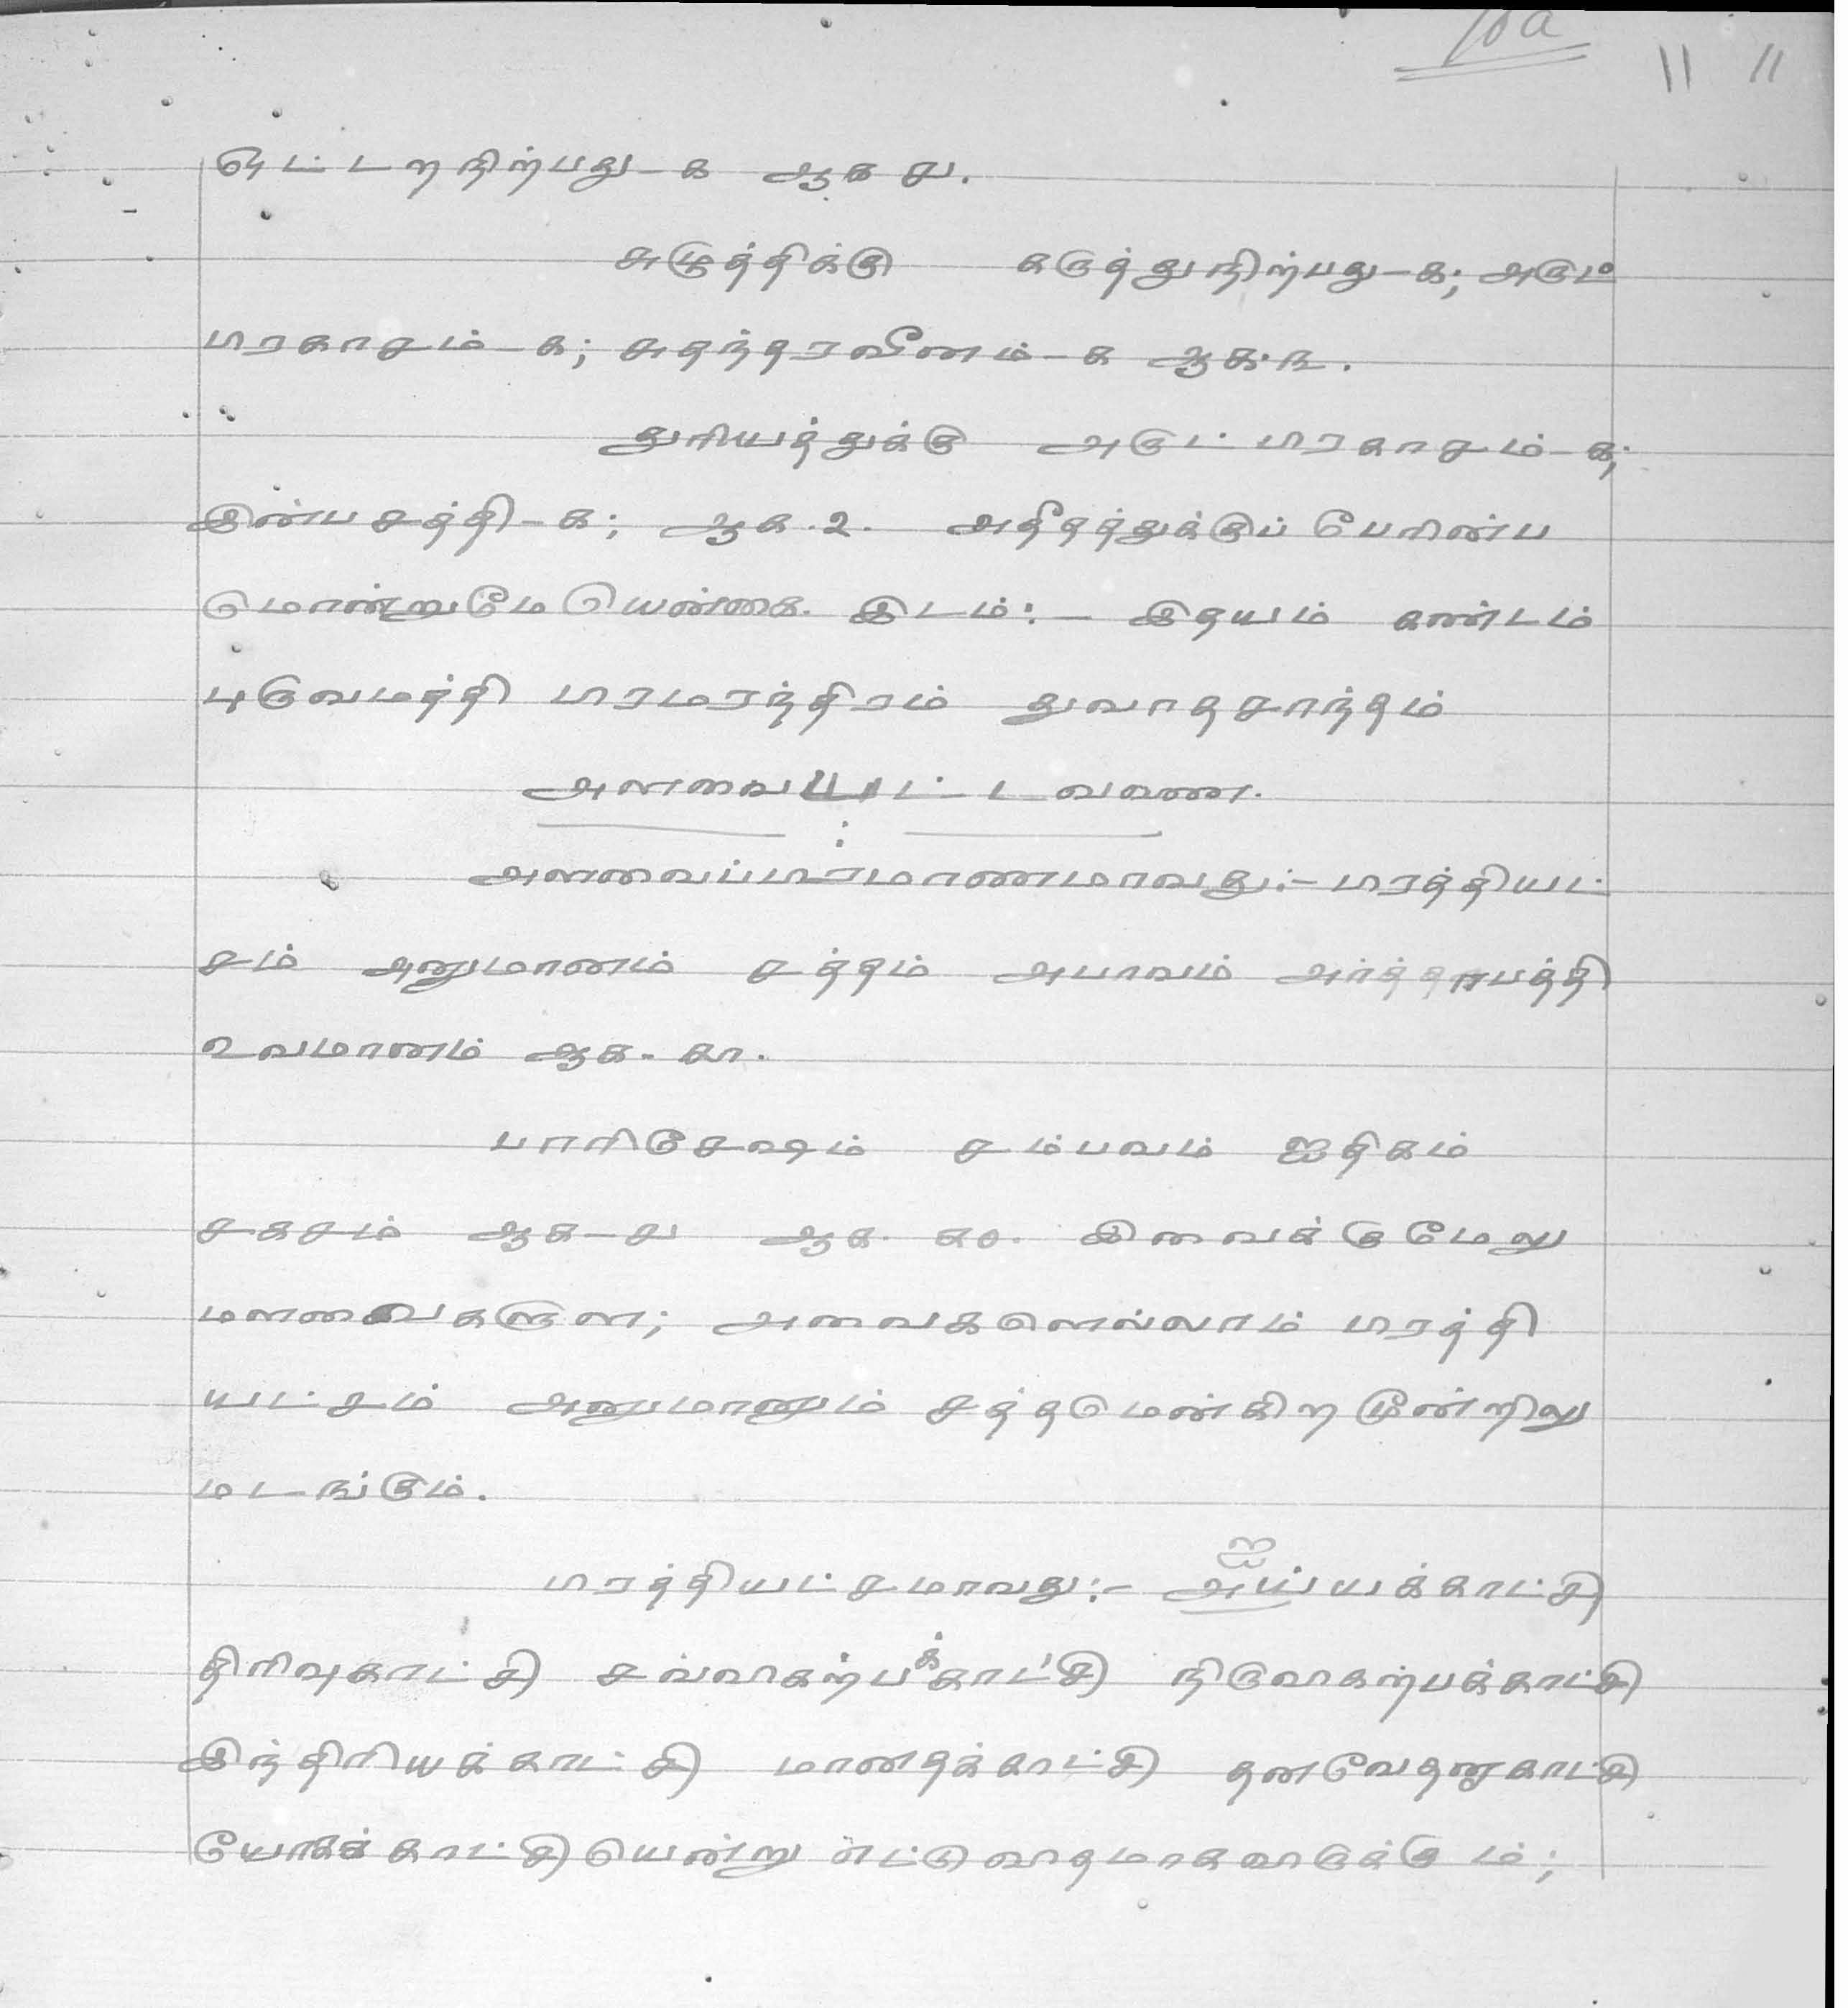 10a 11 11
ஒட்டற நிற்பது-க ஆக ௪.
சுழுத்திக்கு கருத்துநிற்பது-க; அருட்
பிரகாசம்-க; சுதந்தரவீனம்-க ஆக.௩.
துரியத்துக்கு அருட் பிரகாசம்-க;
இன்பசத்தி-க; ஆக.௨. அதீதத்துக்குப் பேரின்ப
மொன்றுமே யென்க. இடம்:- இதயம் கண்டம்
புருவமத்தி பிரமரந்திரம் துவாதசாந்தம்
அளவையட்டவணை.
அளவைப்பிரமாணமாவது:- பிரத்தியட்
சம் அனுமானம் சத்தம் அபாவம் அர்த்தாபத்தி
உவமானம் ஆக-௬.
பாரிசேஷம் சம்பவம் ஐதிகம்
சகசம் ஆக-௪ ஆக. ௧௦. இவைக்குமேலு
மளவைகளுள; அவைகளெல்லாம் பிரத்தி
யட்சம் அனுமானம் சத்தமென்கிற மூன்றிலு
மடங்கும்.
பிரத்தியட்சமாவது:- ஐயக்காட்சி
திரிவுகாட்சி சவ்விகற்பக்காட்சி நிருவிகற்பக்காட்சி
இந்திரியக்காட்சி மானதக்காட்சி தனவேதனுகாட்சி
யோகக்காட்சி யென்று எட்டு விதமாகவிருக்கும்;